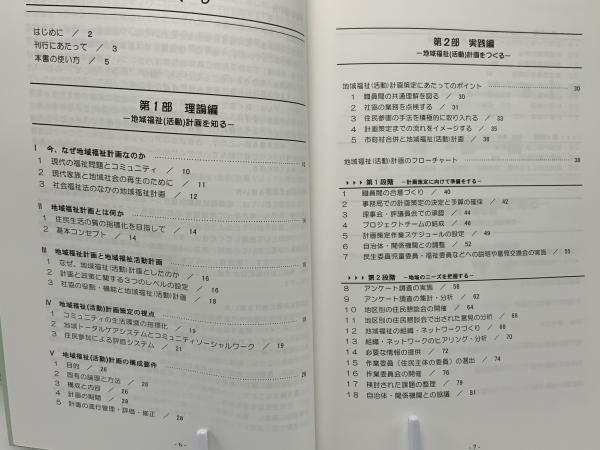 はじめに / 2
刊行にあたって / 3
本書の使い方 / 5
第1部 理論編
－地域福祉(活動)計画を知る－
Ⅰ 今、なぜ地域福祉計画なのか
1 現代の福祉問題とコミュニティ / 10
2 現代家族と地域社会の再生のために / 11
3 社会福祉法のなかの地域福祉計画 / 12
Ⅱ 地域福祉計画とは何か
1 住民生活の質の指標化を目指して / 14
2 基本コンセプト / 14
Ⅲ 地域福祉計画と地域福祉活動計画
1 なぜ、地域福祉(活動)計画としたのか / 16
2 計画と政策に関する3つのレベルの設定 / 16
3 社協の役割・機能と地域福祉(活動)計画 / 18
Ⅳ 地域福祉(活動)計画策定の視点
1 コミュニティの生活環境の指標化 / 19
2 地域トータルケアシステムとコミュニティソーシャルワーク / 19
3 住民参加による評価システム / 21
Ⅴ 地域福祉(活動)計画の構成要件
1 目的 / 26
2 固有の論理と方法 / 26
3 構成と内容 / 26
4 計画の期間 / 28
5 計画の進行管理・評価・修正 / 28
- 6 -
第2部 実践編
－地域福祉(活動)計画をつくる－
地域福祉(活動)計画策定にあたってのポイント 30
1 職員間の共通理解を図る / 30
2 社協の業務を点検する / 31
3 住民参画の手法を積極的に取り入れる / 33
4 計画策定までの流れをイメージする / 35
5 市町村合併と地域福祉(活動)計画 / 36
地域福祉(活動)計画のフローチャート 38
▶▶▶ 第1段階 －計画策定に向けて準備をする－
1 職員間の合意づくり / 40
2 事務局での計画策定の決定と予算の確保 / 42
3 理事会・評議員会での承認 / 44
4 プロジェクトチームの結成 / 46
5 計画策定作業スケジュールの設定 / 49
6 自治体・関係機関との調整 / 52
7 民生委員児童委員・福祉委員などへの説明や意見交換会の実施 / 55
▶▶▶ 第2段階 －地域のニーズを把握する－
8 アンケート調査の実施 / 58
9 アンケート調査の集計・分析 / 62
10 地区別の住民懇談会の開催 / 64
11 地区別の住民懇談会で出された意見の分析 / 66
12 地域福祉の組織・ネットワークづくり / 68
13 組織・ネットワークのヒアリング・分析 / 70
14 必要な情報の提供 / 72
15 作業委員(住民主体の委員)の選出 / 74
16 作業委員会の開催 / 76
17 検討された課題の整理 / 79
18 自治体・関係機関との協議 / 81
- 7 -